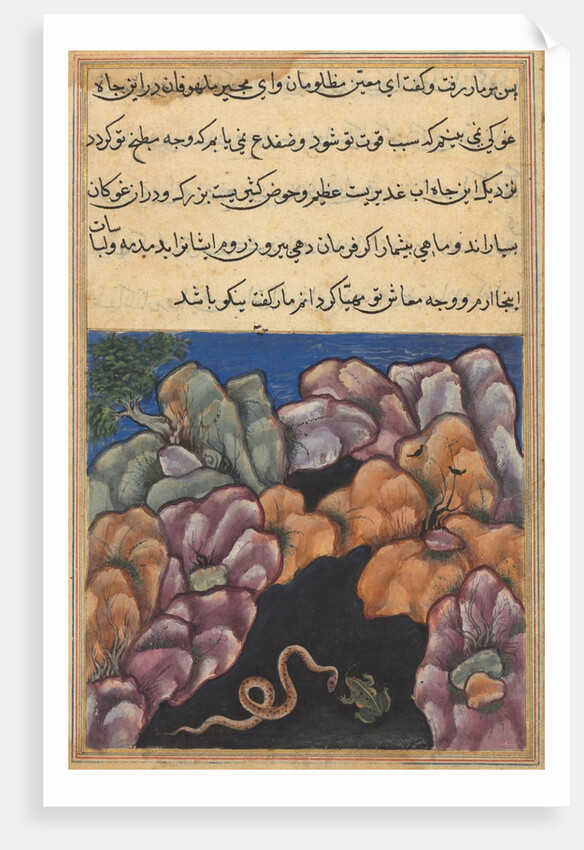 پس بر مار رفت و گفت ای معین مظلومان و ای مجیر ملهوفان در این چاه
غوکی نمی بینم که سبب قوت تو شود و ضفدع نمی یابم که وجه مطبخ تو گردد
نزدیک این چاه اب غدیریست عظیم و حوض کثیریست بزرک و در ان غوکان
بسیار اند و ماهی بیشمار اگر فرمان دهی بیرون روم ایشانرا بدمدمه و لباسات
اینجا ارم و وجه معاش تو مهیا کردانم مار گفت نیکو باشد